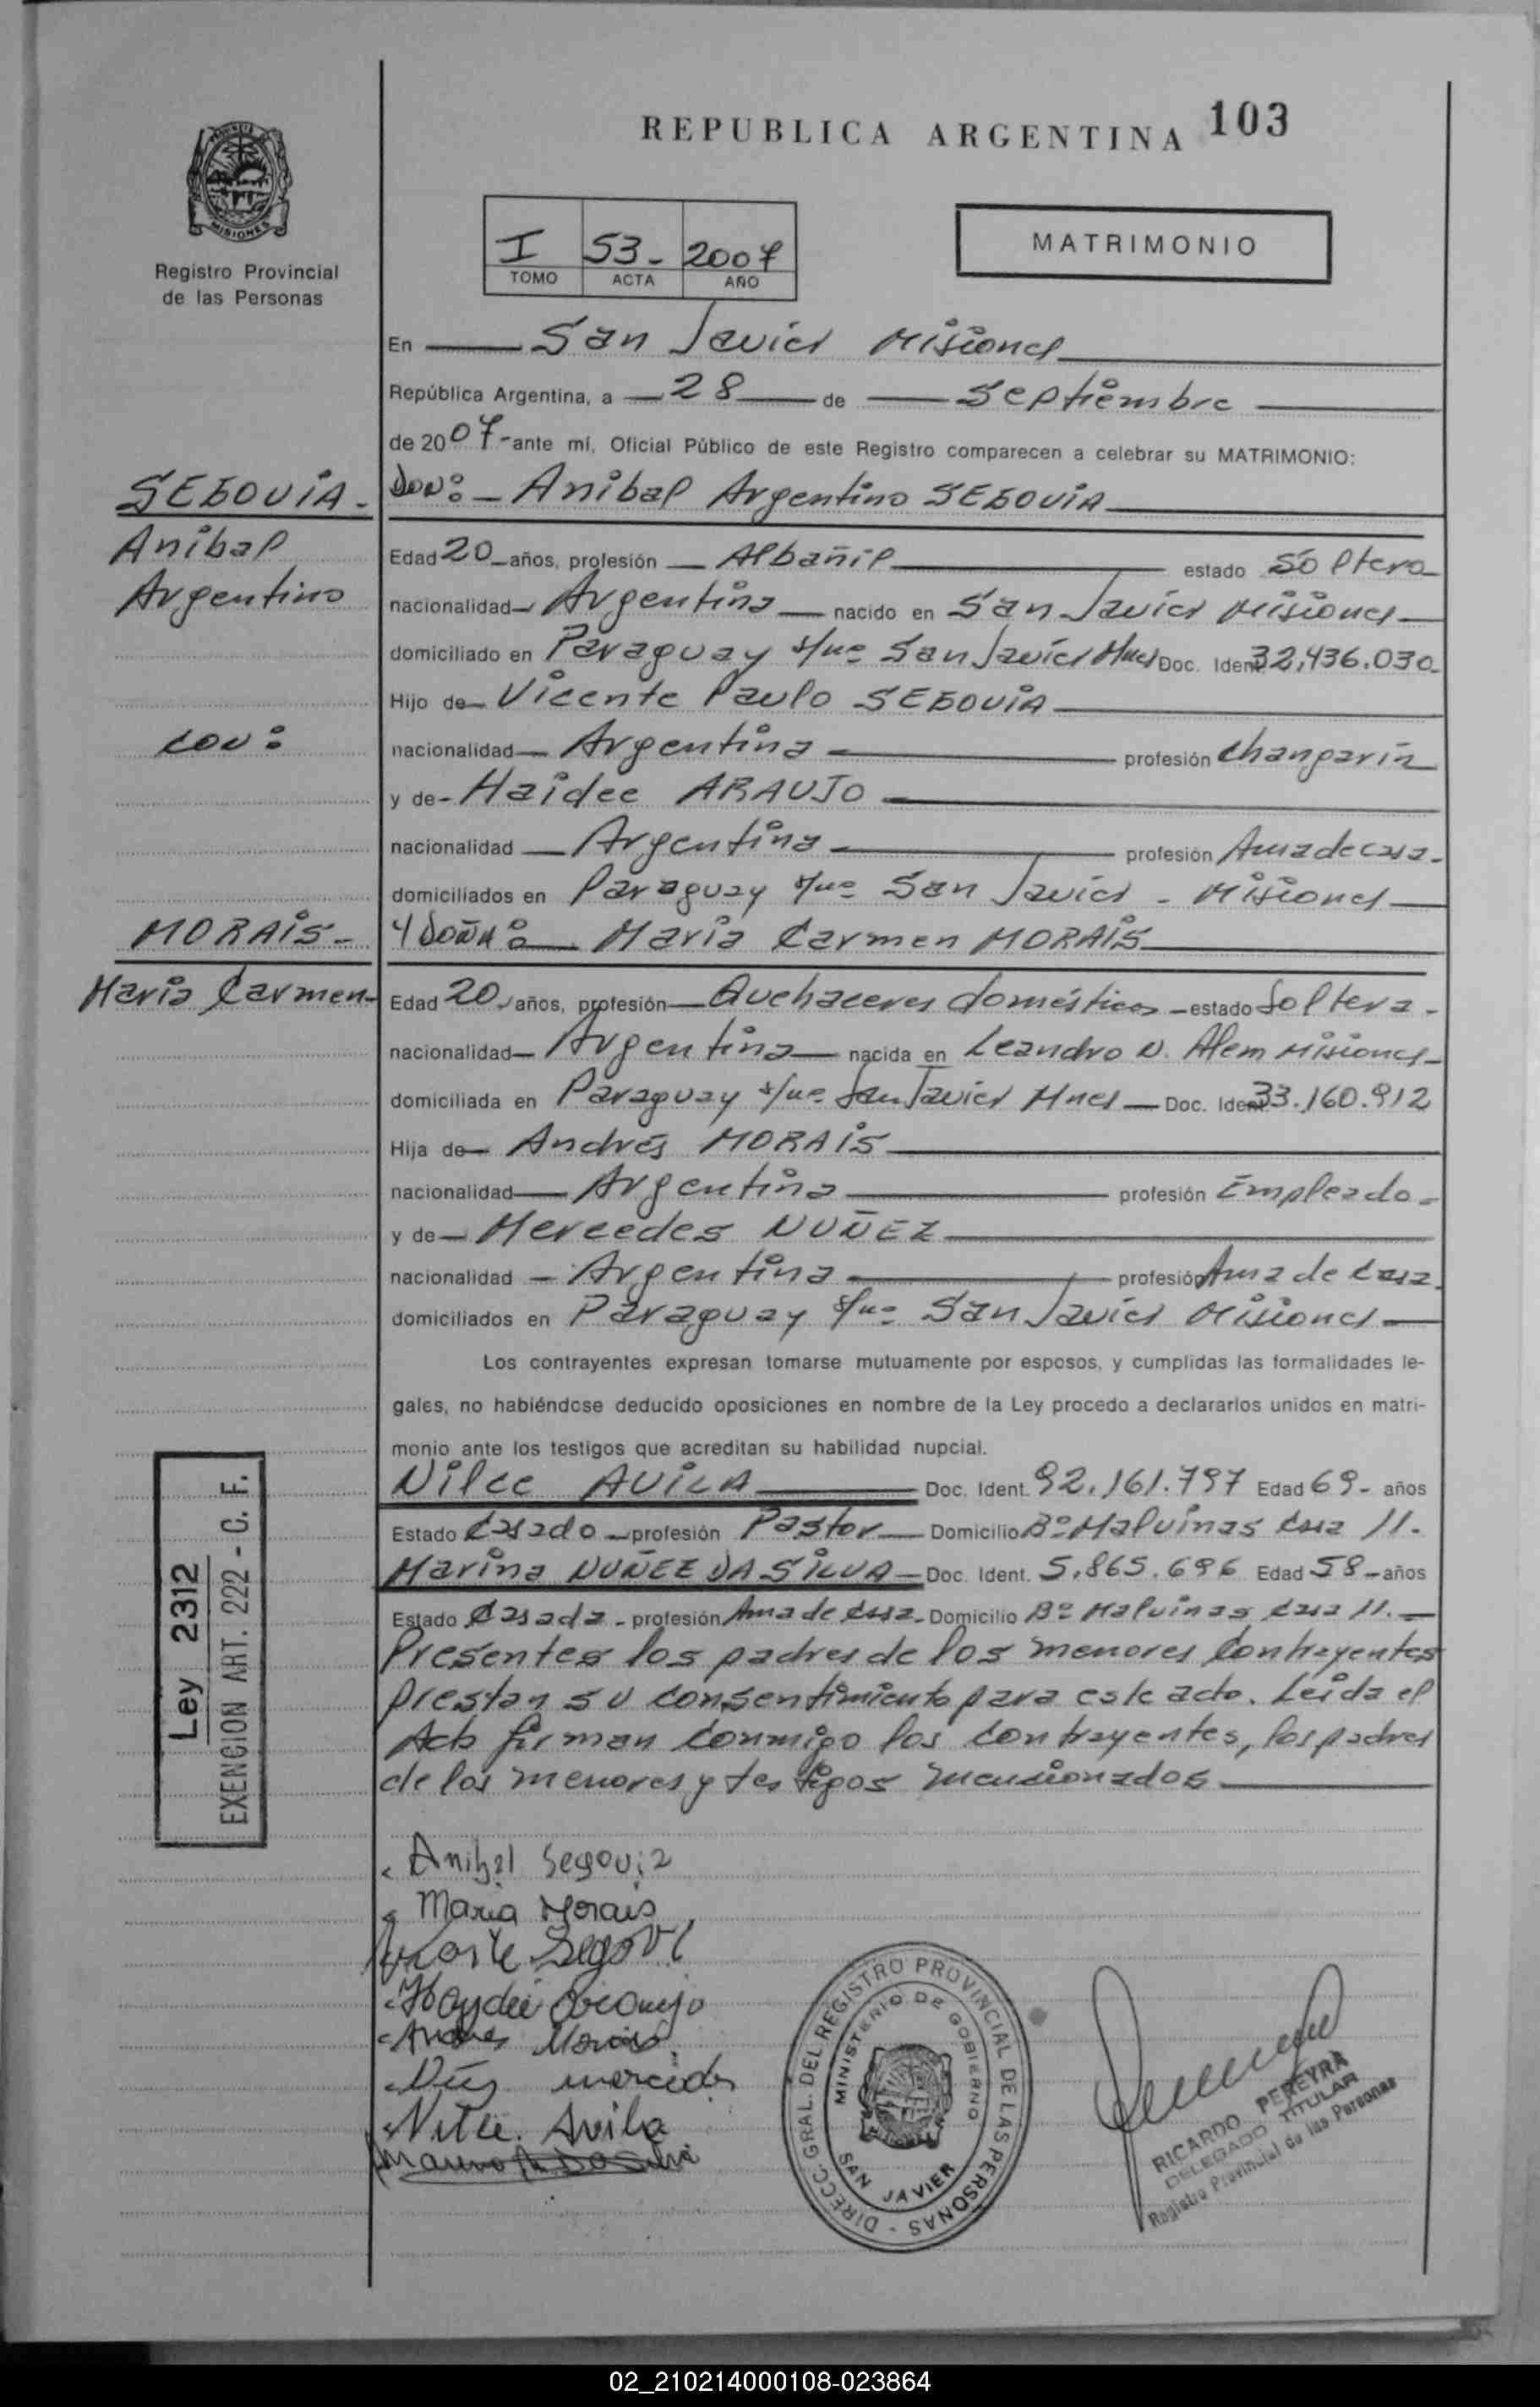 REPUBLICA ARGENTINA 103
MISIONES
Registro Provincial
de las Personas
MATRIMONIO
I 53- 2007
TOMO ACTA AÑO
En San Javier Misiones
República Argentina, a 28 de Septiembre
de 2007- ante mí, Oficial Público de este Registro comparecen a celebrar su MATRIMONIO:
SEGOVIA-
Anibal
Argentino
con:
MORAIS-
Maria Carmen-
Don:- Anibal Argentino SEGOVIA
Edad 20 años, profesión Albañil estado Soltero
nacionalidad Argentina nacido en San Javier Misiones
domiciliado en Paraguay s/nº San Javier Mnes Doc. Ident. 32.436.030-
Hijo de Vicente Paulo SEGOVIA
nacionalidad Argentina profesión Changarín
y de- Haidee ARAUJO
nacionalidad Argentina profesión Ama de casa-
domiciliados en Paraguay s/nº San Javier - Misiones
Y DOÑA: Maria Carmen MORAIS
Edad 20 años, profesión Quehaceres domésticos - estado Soltera-
nacionalidad Argentina nacida en Leandro N. Alem Misiones-
domiciliada en Paraguay s/nº San Javier Mnes Doc. Ident. 33.160.912
Hija de Andrés MORAIS
nacionalidad Argentina profesión Empleado-
y de Mercedes NUÑEZ
nacionalidad - Argentina profesión Ama de casa
domiciliados en Paraguay s/nº San Javier Misiones
Los contrayentes expresan tomarse mutuamente por esposos, y cumplidas las formalidades le-
gales, no habiéndose deducido oposiciones en nombre de la Ley procedo a declararlos unidos en matri-
monio ante los testigos que acreditan su habilidad nupcial.
Nilce AVILA Doc. Ident. 92.161.797 Edad 69- años
Estado Casado profesión Pastor Domicilio Bº Malvinas Casa 11.
Marina NUÑEZ DA SILVA Doc. Ident. 5.865.696 Edad 58 años
Estado Casada - profesión Ama de casa- Domicilio Bº Malvinas Casa 11.
Presentes los padres de los menores contrayentes
prestan su consentimiento para este acto. Leida el
Acta firman conmigo los contrayentes, los padres
de los menores y testigos mencionados
Ley 2312
EXENCION ART. 222 - C. F.
Anibal Segovia
Maria Morais
Haydeé Araujo
Andres Morais
mercedes
Nilce. Avila
DIRECC. GRAL. DEL REGISTRO PROVINCIAL DE LAS PERSONAS -
MINISTERIO DE GOBIERNO
SAN JAVIER
RICARDO PEREYRA
DELEGADO TITULAR
Registro Provincial de las Personas
02_210214000108-023864